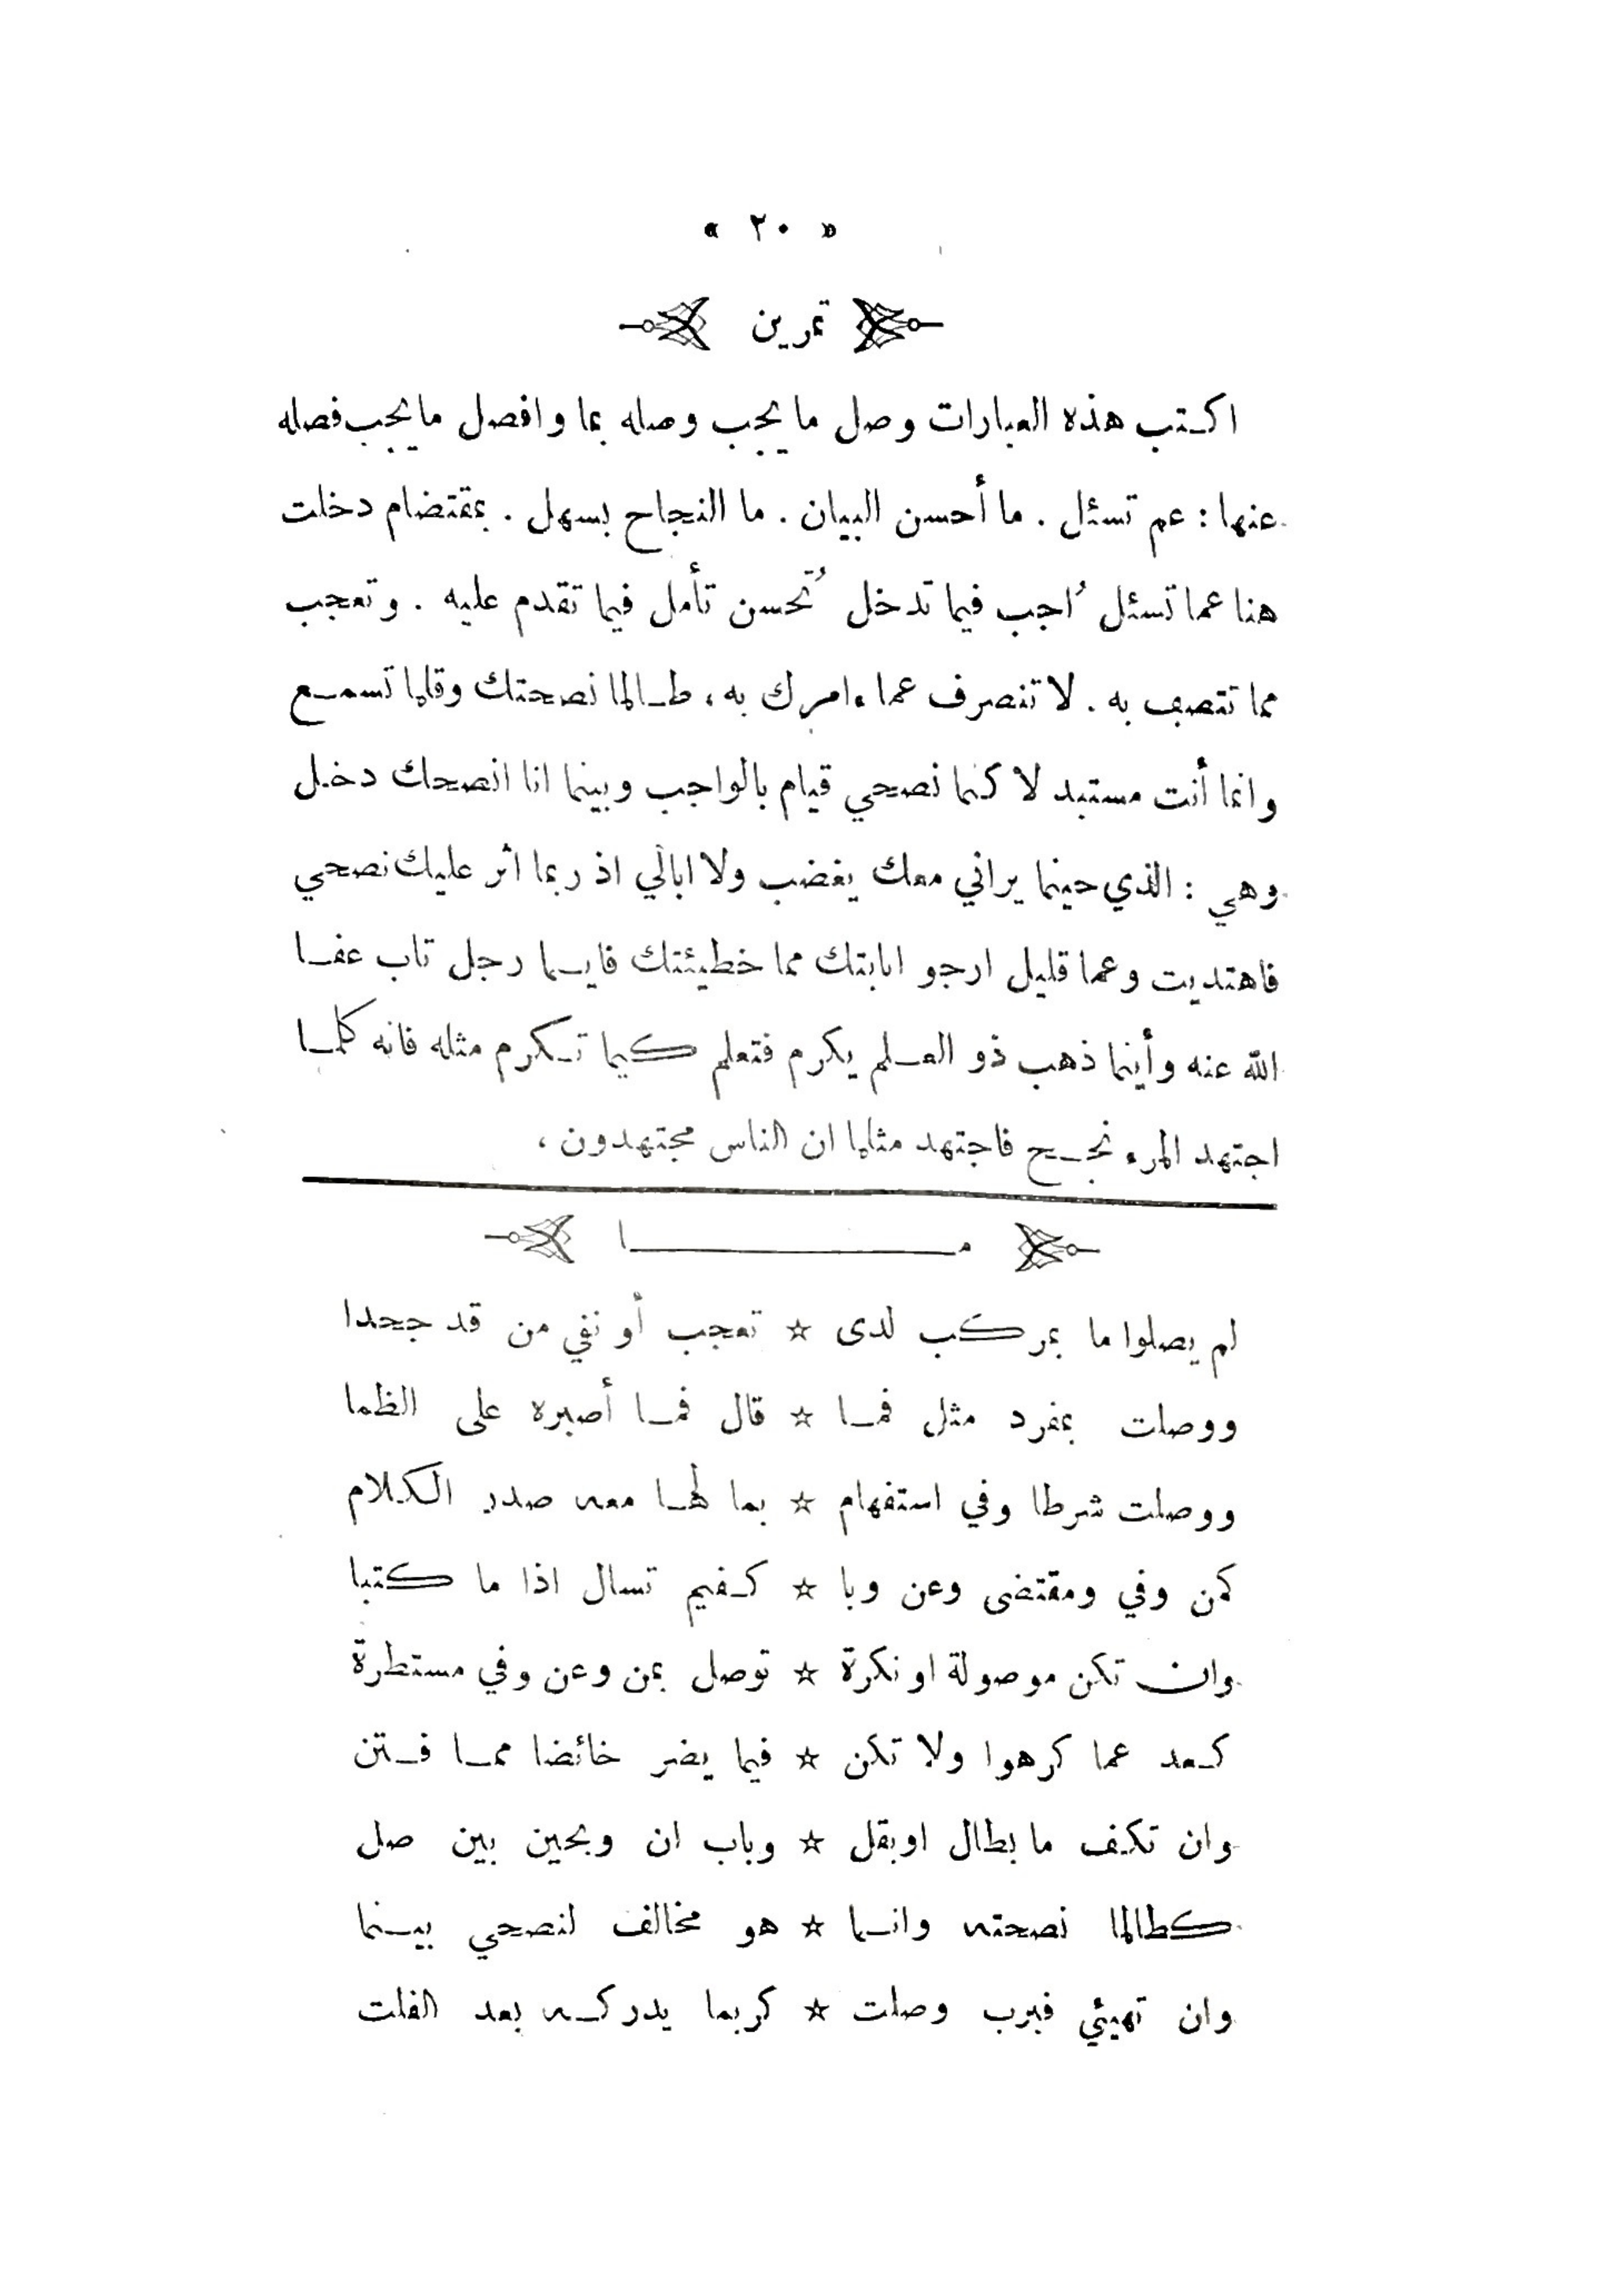 « ٢٠ »
تمرين
اكتب هذه العبارات وصل ما يجب وصله بما وافصل ما يجب فصله
عنها : عم تسئل . ما أحسن البيان . ما النجاح بسهل . بمقتضام دخلت
هنا عما تسئل ُاجب فيما تدخل تُحسن تأمل فيما تقدم عليه . وتعجب
مما تتصف به . لا تنصرف عما ءامرك به ، طالما نصحتك وقلما تسمع
وانما أنت مستبد لا كنما نصحي قيام بالواجب وبينما انا انصحك دخل
وهي : الذي حينما يراني معك يغضب ولا ابالي اذ ربما اثر عليك نصحي
فاهتديت وعما قليل ارجو انابتك مما خطيئتك فايما رجل تاب عفا
الله عنه وأينما ذهب ذو العلم يكرم فتعلم كيما تكرم مثله فانه كلما
اجتهد المرء نجح فاجتهد مثلما ان الناس مجتهدون ،
مـــا
لم يصلوا ما بمركب لدى ☆ تعجب أو نفي من قد جحدا
ووصلت بمفرد مثل فما ☆ قال فما أصبره على الظما
ووصلت شرطا وفي استفهام ☆ بما لها معه صدر الكلام
كمن وفي ومقتضى وعن وبا ☆ كفيم تسال اذا ما كتبا
وان تكن موصولة او نكرة ☆ توصل بمن وعن وفي مستطرة
كعد عما كرهوا ولا تكن ☆ فيما يضر خائضا مما فتن
وان تكف ما بطال اوبقل ☆ وباب ان وبحين بين صل
كطالما نصحته وانما ☆ هو مخالف لنصحي بينما
وان تهيئي فبرب وصلت ☆ كربما يدركه بعد الفلت